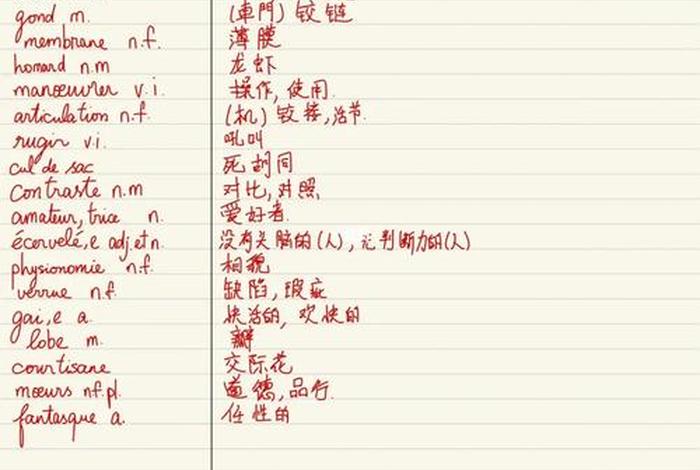 gond m. (車門) 铰链
membrane n.f. 薄膜
homard n.m 龙虾
manœuvrer v.i. 操作, 使用.
articulation n.f. (机) 铰接, 活节.
rugir v.i. 吼叫
cul de sac 死胡同
contraste n.m 对比, 对照.
amateur, trice n. 爱好者.
écervelé, e adj. et n. 没有头脑的(人), 无判断力的(人)
physionomie n.f. 相貌
verrue n.f. 缺陷, 瑕疵
gai, e a. 快活的, 欢快的
lobe m. 瓣
courtisane 交际花
mœurs nf.pl. 道德, 品行.
fantasque a. 任性的